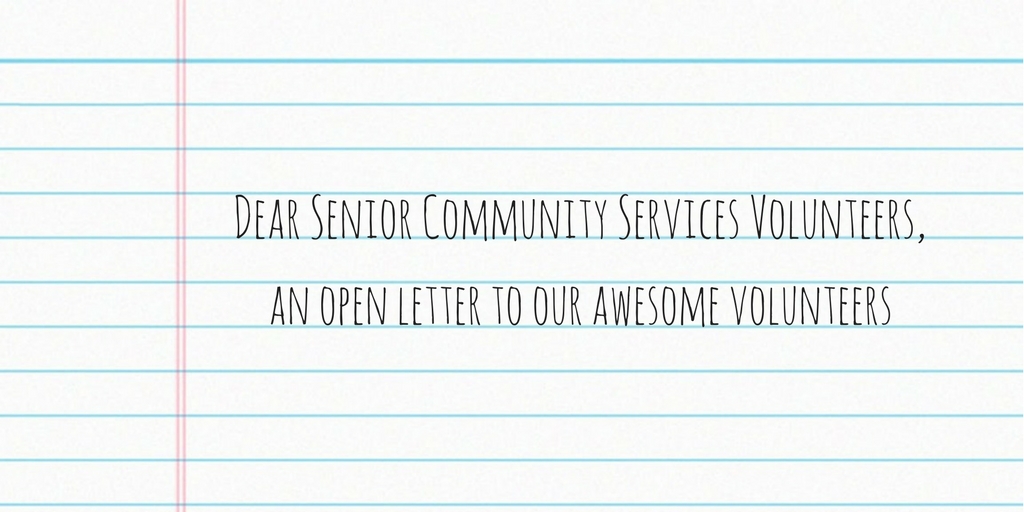 Dear Senior Community Services Volunteers,
an open letter to our awesome volunteers